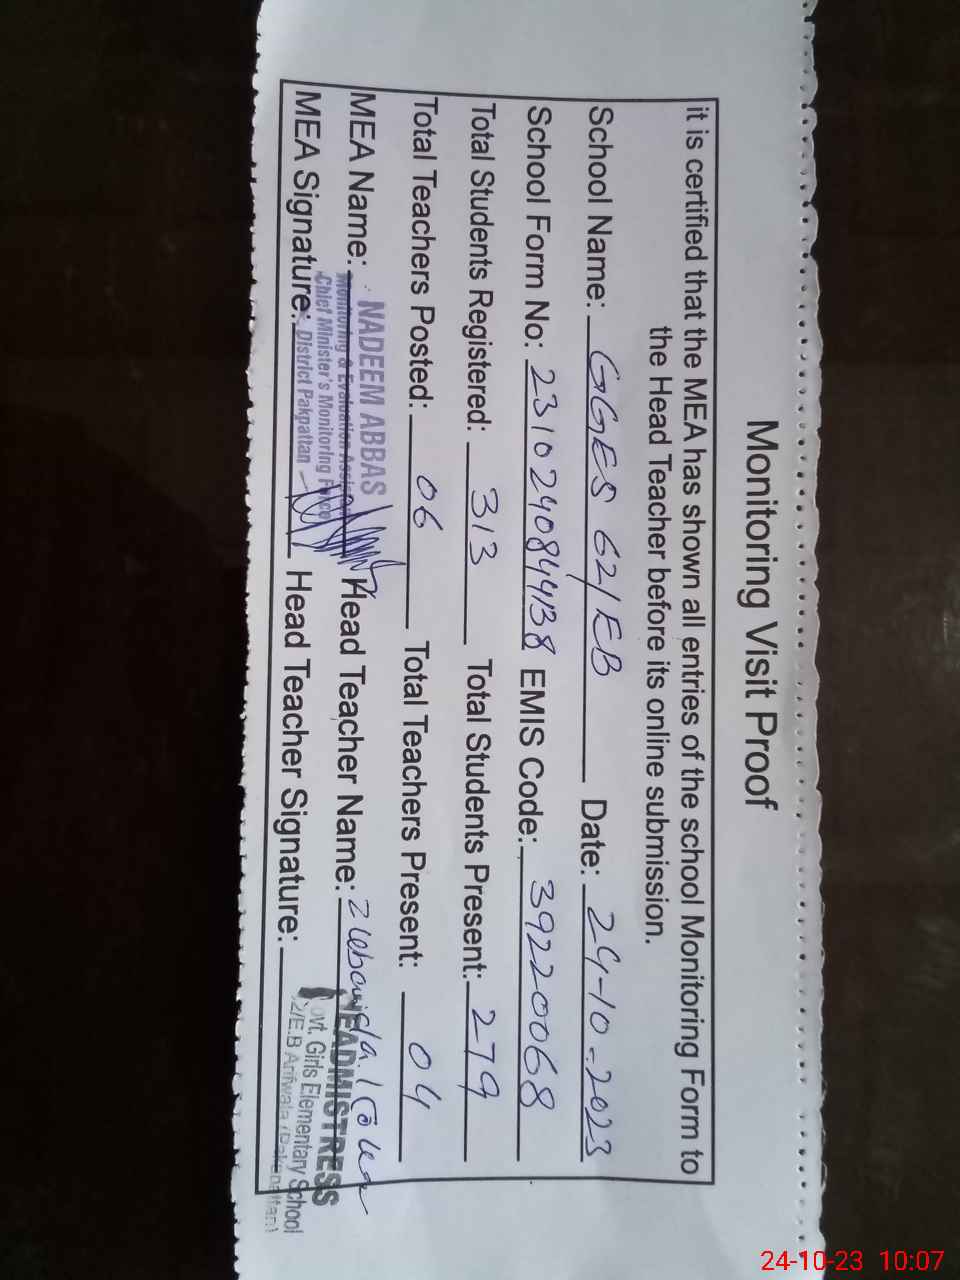 Monitoring Visit Proof
it is certified that the MEA has shown all entries of the school Monitoring Form to
the Head Teacher before its online submission.
School Name: GGES 62/EB Date: 24-10-2023
School Form No: EMIS Code: 39220068
Total Students Registered: 313 Total Students Present: 279
Total Teachers Posted: 06 Total Teachers Present: 04
MEA Name: NADEEM ABBAS Head Teacher Name:
Monitoring & Evaluation
Chief Minister's Monitoring Force
MEA Signature: District Pakpattan Head Teacher Signature:
HEADMISTRESS
Govt. Girls Elementary School
62/E.B Arifwala (Pakpattan)
24-10-23 10:07